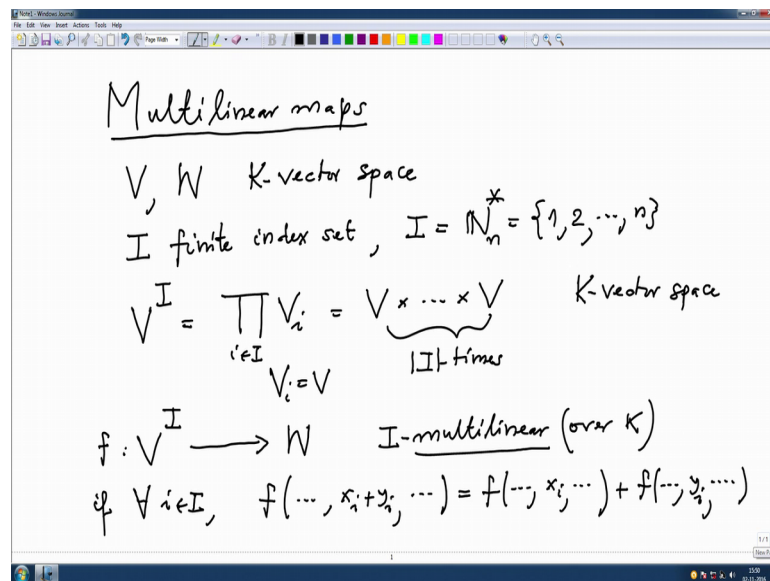 Note1 - Windows Journal
File Edit View Insert Actions Tools Help
Page Width
Multilinear maps
V, W K-vector space
I finite index set, I = ℕ*ₙ = {1, 2, ..., n}
V^I = ∏_{i∈I} V_i = V × ... × V K-vector space
|I|-times
V_i = V
f : V^I ⟶ W I-multilinear (over K)
if ∀ i∈I, f(..., x_i+y_i, ...) = f(..., x_i, ...) + f(..., y_i, ...)
1/1
1
15:50